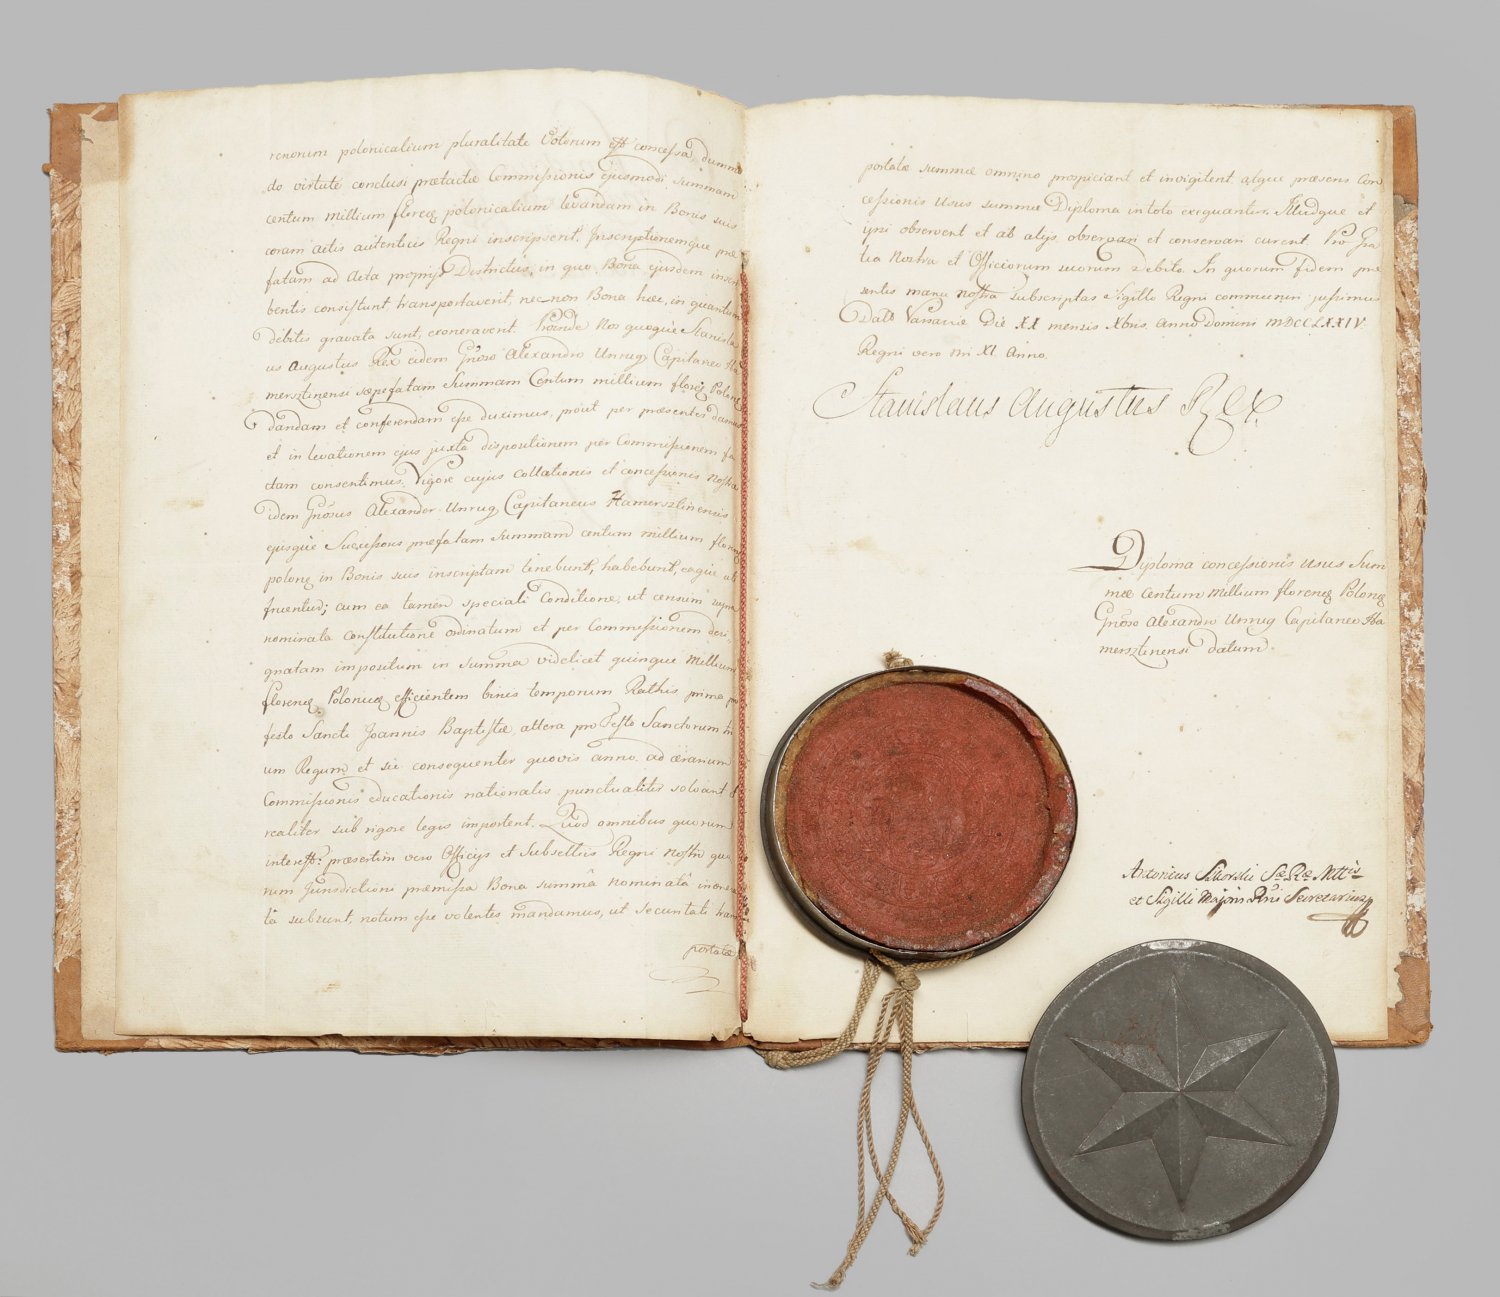 renorum polonicalium pluralitate Votorum est concessa, dumm
do virtute conclusi prætactæ Commissionis ejusmodi summam
centum millium florenq polonicalium levandam in Bonis suis
coram actis autenticis Regni inscripserit. Inscriptionemque præ
fatam ad Acta proprii Districtus, in quo Bona ejusdem inscri
bentis consistunt transportaverit, nec non Bona hæc, in quantum
debitis gravata sunt, exoneraverit. Proinde Nos quoque Stanisla
us Augustus Rex eidem Gnoso Alexandro Unrug Capitaneo Ha
mersztinensi sæpefatam Summam Centum millium florenq Polonq
dandam et conferendam esse duximus, prout per præsentes damus
et in levationem ejus juxta dispositionem per Commissionem fa
ctam consentimus. Vigore cujus collationis et concessionis nostræ
idem Gnosus Alexander Unrug Capitaneus Hamersztinensis
ejusque Successores præfatam Summam centum millium florenq
polonq in Bonis suis inscriptam tenebunt, habebunt, eaque uti
fruentur; cum ea tamen speciali Conditione, ut censum
nominata constitutione ordinatum et per Commissionem desi-
gnatam impositum in summa videlicet quinque millium
florenq Polonicq efficientem binis temporum Rathis prima pro
festo Sancti Joannis Baptistæ, altera pro Festo Sanctorum tri
um Regum, et sic consequenter quovis anno ad ærarium
Commissionis educationis nationalis punctualiter solvant et
realiter sub rigore legis importent. Quod omnibus quorum
interest: præsertim vero Officijs et Subselliis Regni nostri quo
rum Jurisdictioni præmissa Bona summâ nominatâ inonera
ta subsunt, notum esse volentes mandamus, ut securitati trans
portatæ
portatæ summæ omnino prospiciant et invigilent, atque præsens Con
cessionis Usus summæ Diploma in toto exequantur. Illudque et
ipsi observent et ab alijs observari et conservari curent. Pro Gra
tia Nostra et Officiorum suorum debito. In quorum fidem præ
sentes manu nostra subscriptas Sigillo Regni communiri jussimus
Dato Varsaviæ Die XX mensis Xbris, Anno Domini MDCCLXXIV.
Regni vero nri XI. Anno.
Stanislaus Augustus Rex.
Diploma concessionis Usus Sum
mæ Centum Millium florenq Polonq
Gnoso Alexandro Unrug Capitaneo Ha
mersztinensi datum.
Antonius Sikorski Sæ Ræ Mttis
et Sigilli Majoris Rni Secretarius